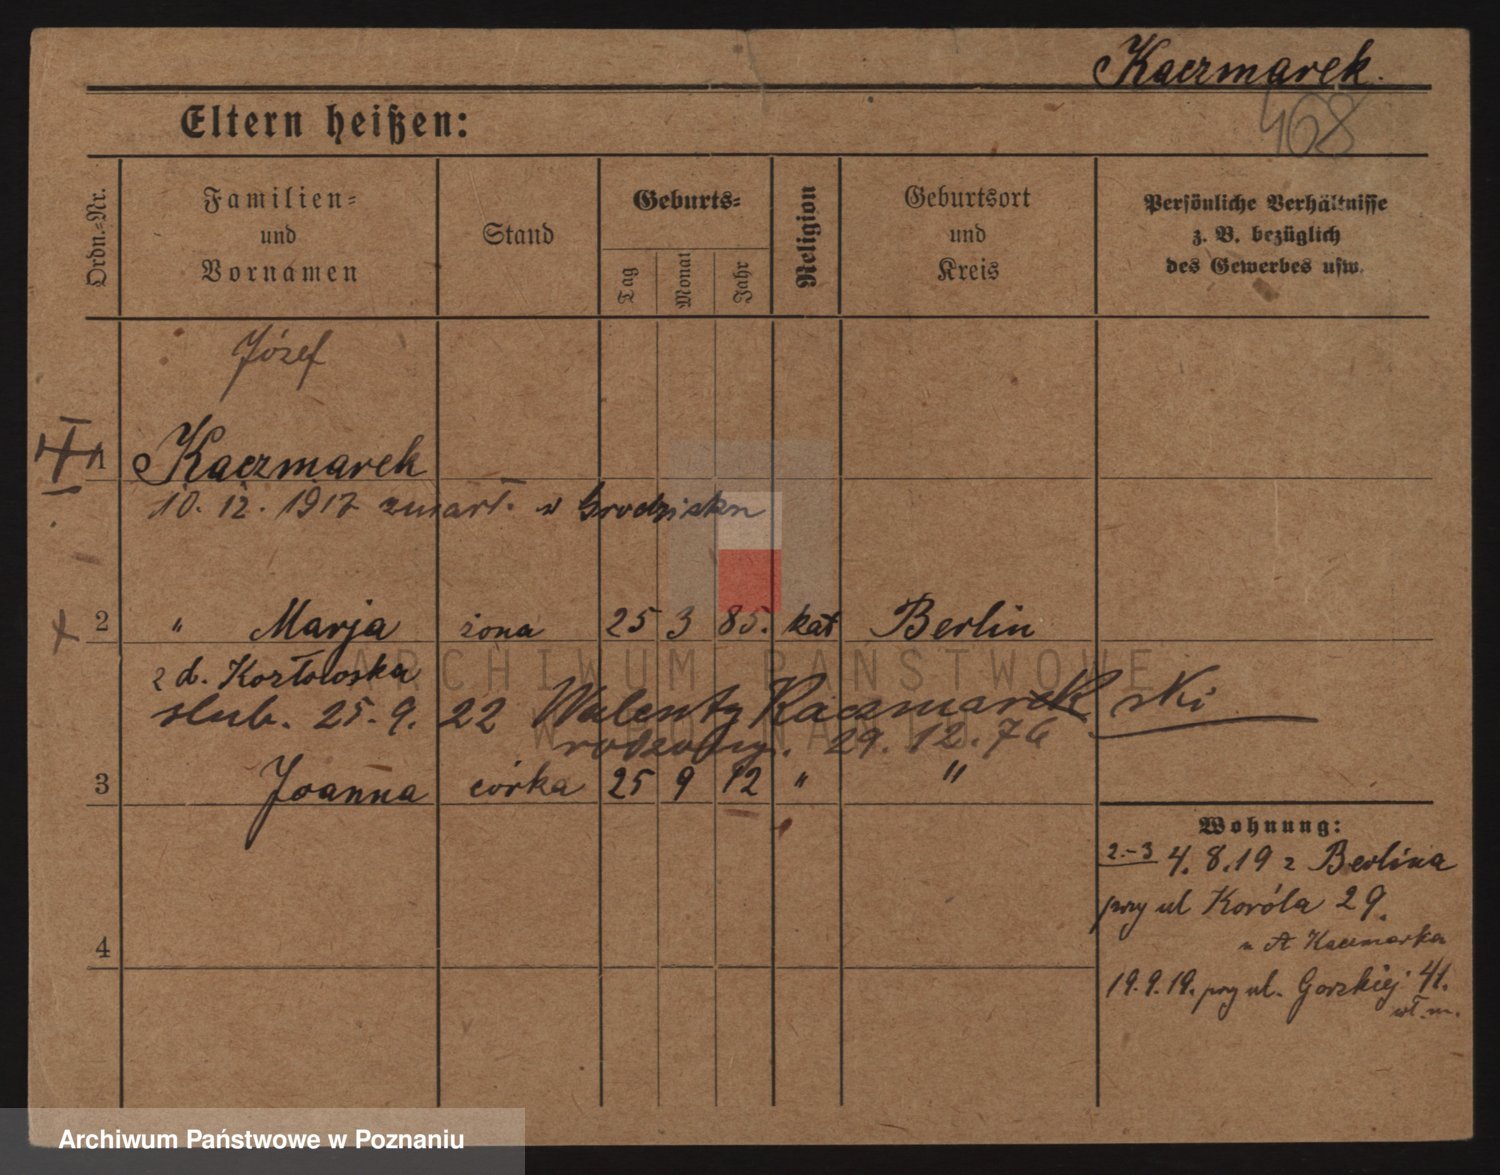 Kaczmarek.
468
Eltern heißen:
Ordn.-Nr.
Familien-
und
Vornamen
Stand
Geburts-
Tag
Monat
Jahr
Religion
Geburtsort
und
Kreis
Persönliche Verhältnisse
z. B. bezüglich
des Gewerbes usw.
Józef
1 Kaczmarek
10. 12. 1917 zmarł. w Grodzisku
2 " Marja żona 25 3 85. kat Berlin
z d. Kozłowska
ślub. 25. 9. 22 Walenty Kaczmarek rski
rodzony. 29. 12. 76
3 Joanna córka 25 9 12 " "
4
Wohnung:
2.-3 4. 8. 19 z Berlina
przy ul Koróla 29.
u A Kaczmarka
19. 9. 19. przy ul. Gorzkiej 41.
wł. m.
ARCHIWUM PAŃSTWOWE
W POZNANIU
Archiwum Państwowe w Poznaniu